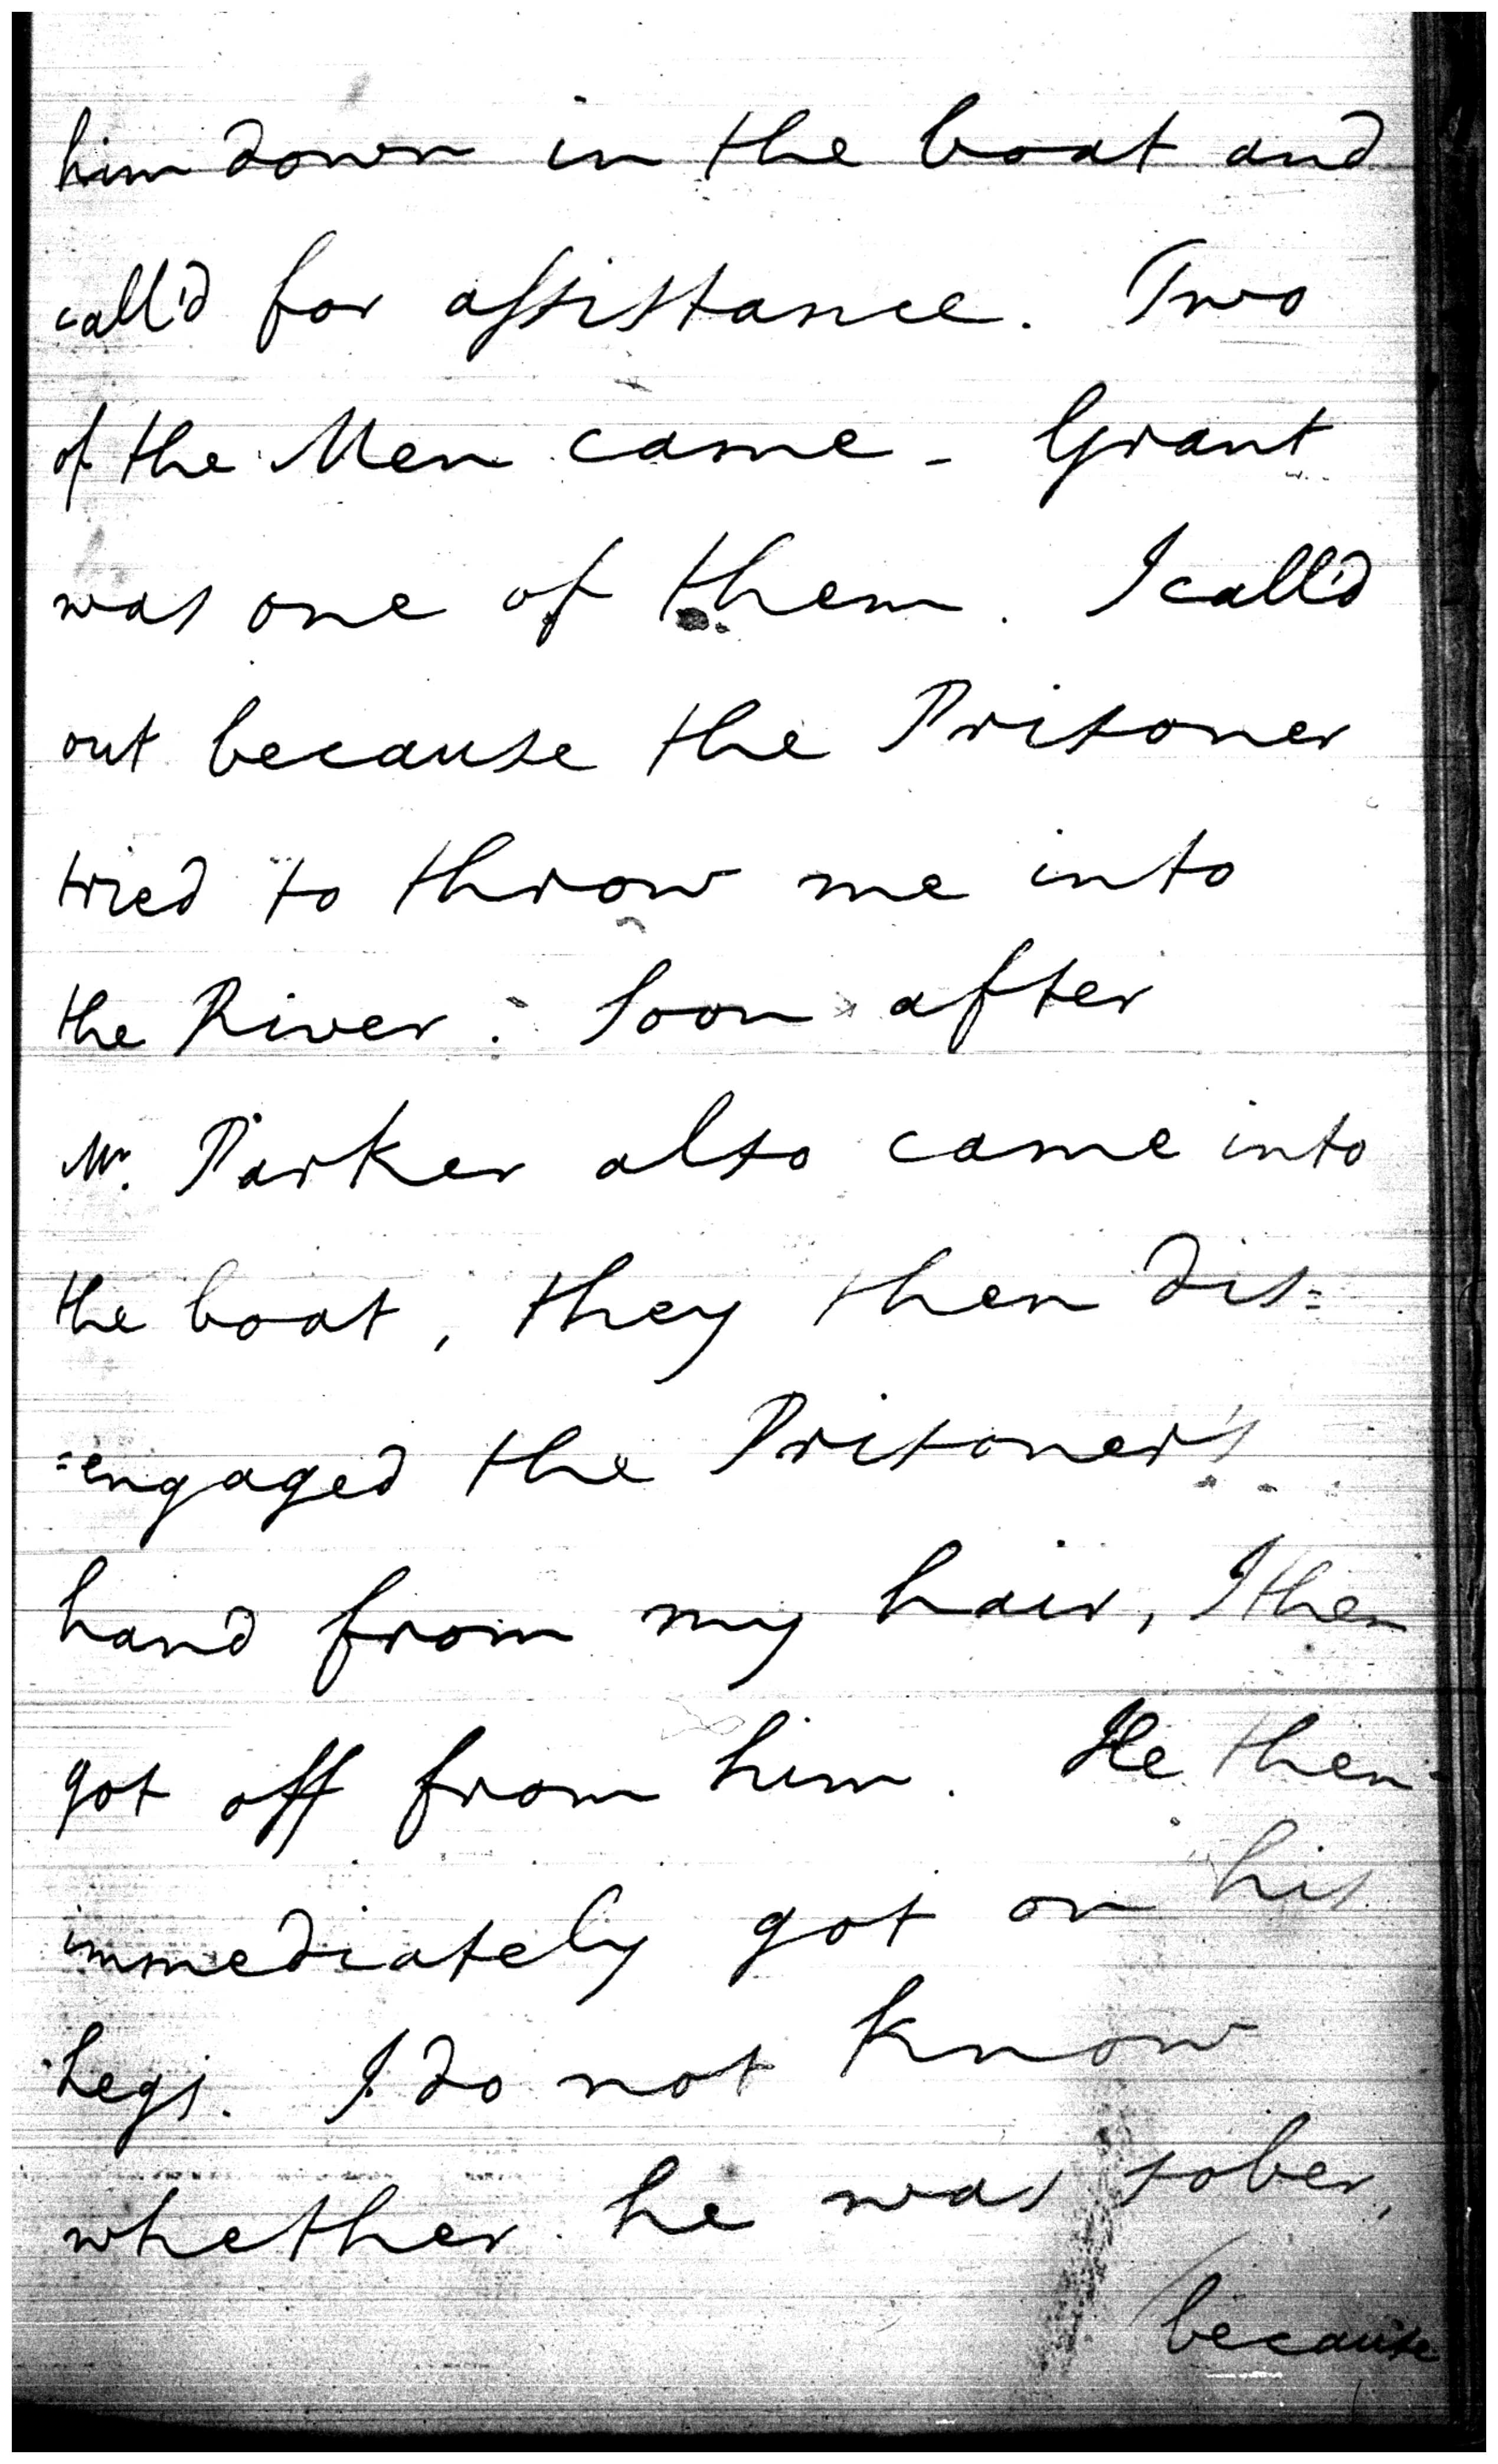 him down in the boat and
call'd for assistance. Two
of the Men came - Grant
was one of them. I call'd
out because the Prisoner
tried to throw me into
the River. Soon after
Mr. Parker also came into
the boat, they then dis=
=engaged the Prisoner's
hand from my hair, I then
got off from him. He then
immediately got on his
Legs. I do not know
whether he was sober,
because